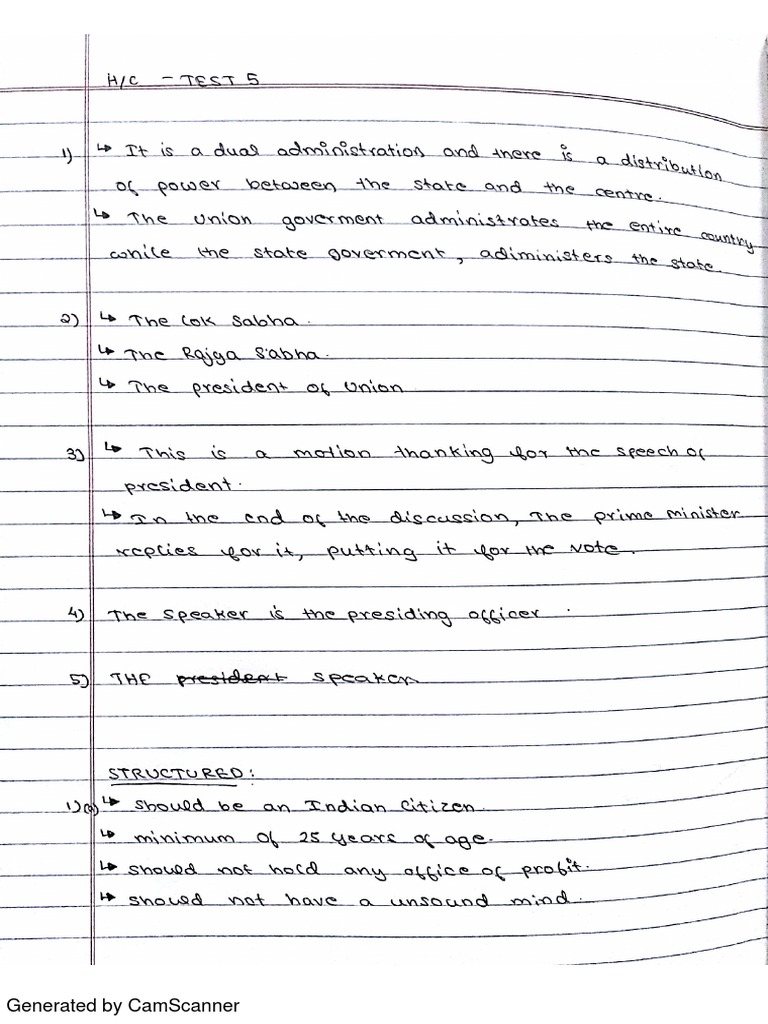 H/C - TEST 5
1) ↳ It is a dual administration and there is a distribution
of power between the state and the centre.
↳ The union goverment administrates the entire country
while the state goverment, adiministers the state.
2) ↳ The Lok Sabha.
↳ The Rajya Sabha.
↳ The president of Union
3) ↳ This is a motion thanking for the speech of
president.
↳ In the end of the discussion, The prime minister
replies for it, putting it for the vote.
4) The speaker is the presiding officer.
5) THE president speaker
STRUCTURED:
1)(a) ↳ should be an Indian citizen.
↳ minimum of 25 years of age.
↳ should not hold any office of profit.
↳ should not have a unsound mind.
Generated by CamScanner